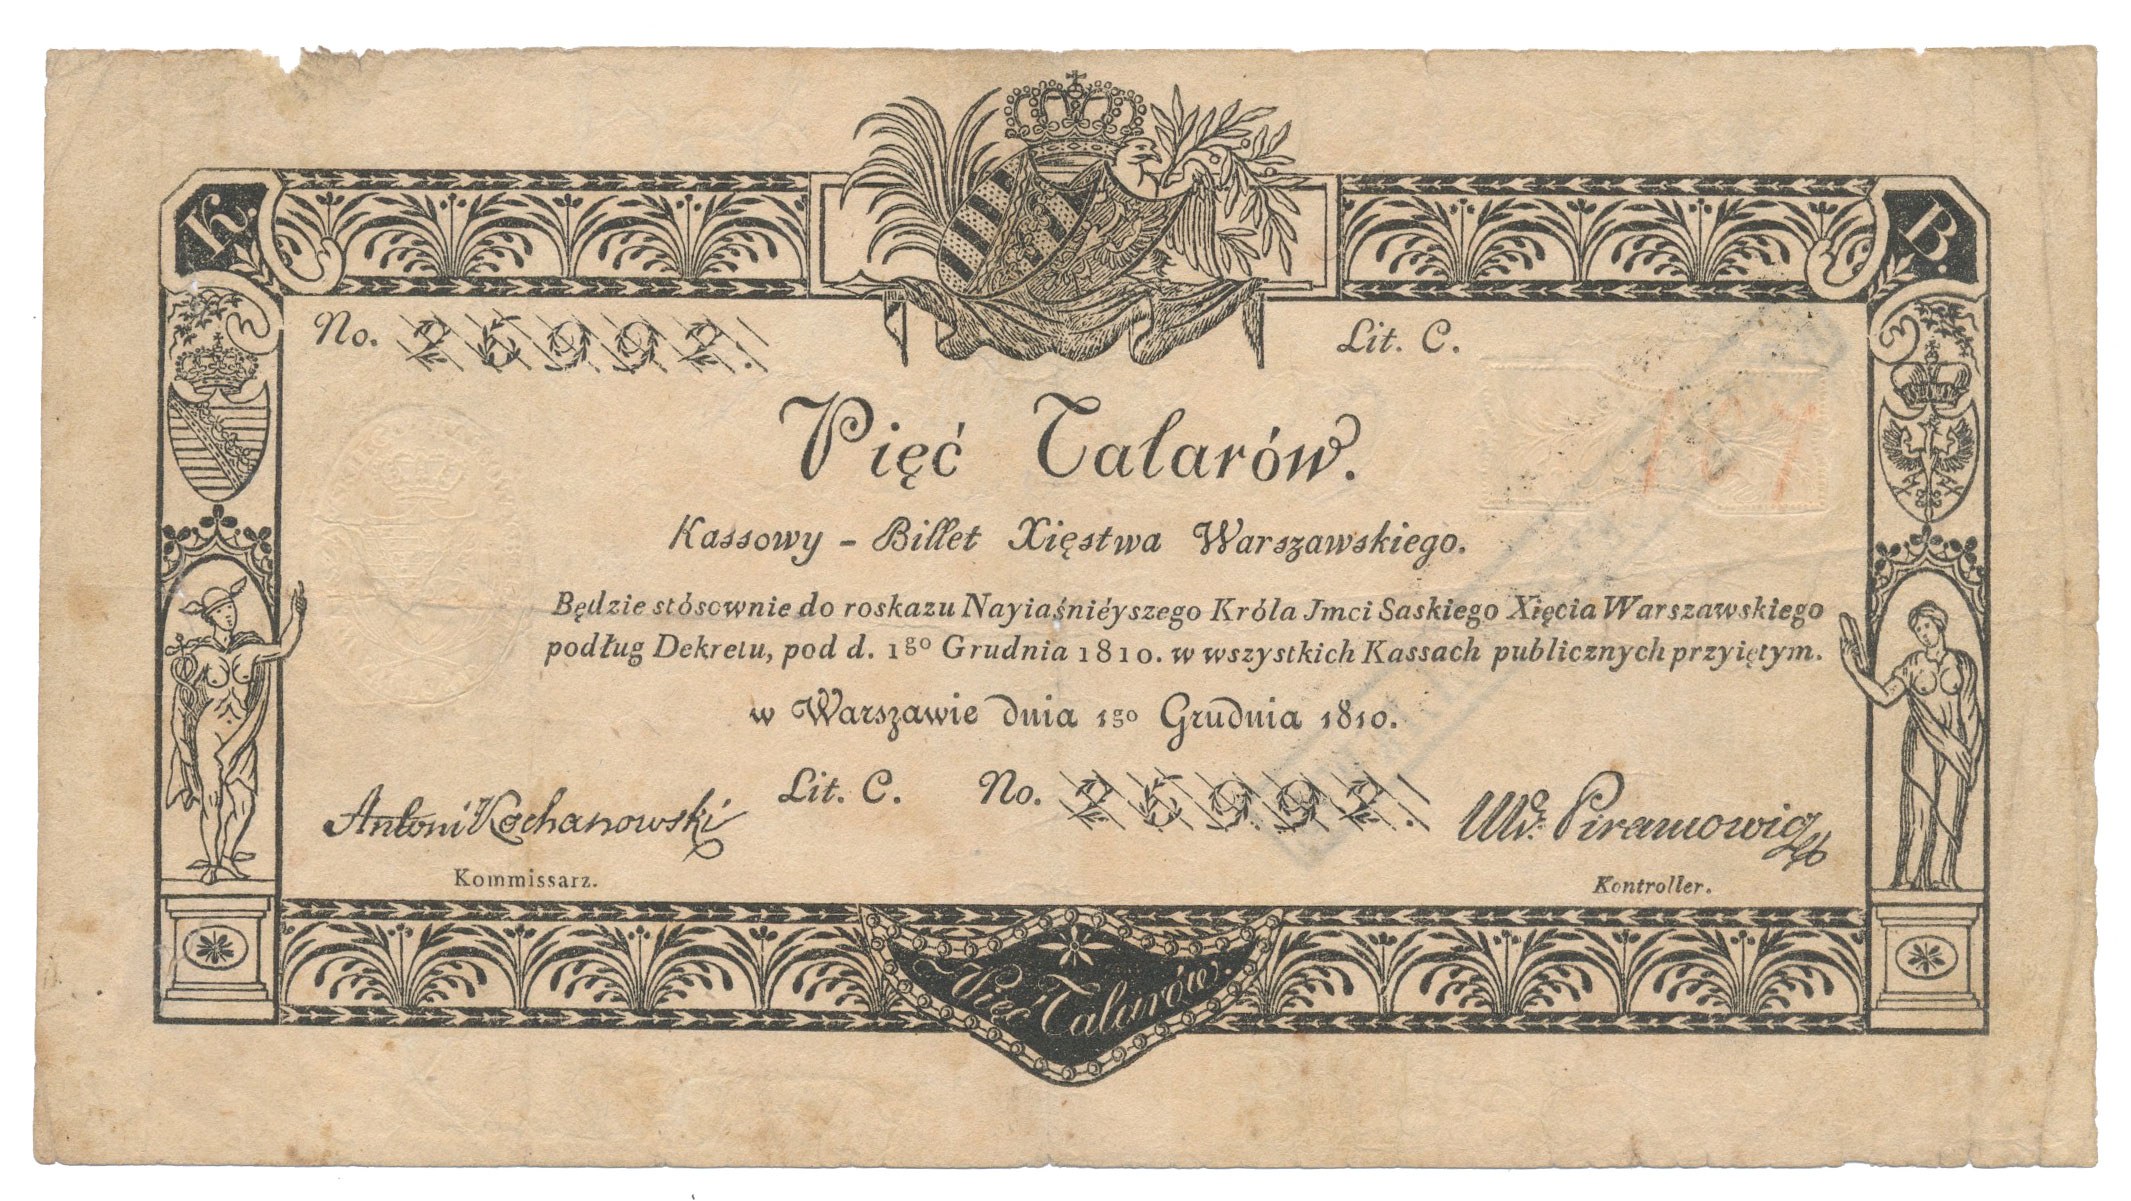 K. B.
No. 25992. Lit. C.
Pięć Talarów.
Kassowy - Billet Xięstwa Warszawskiego.
Będzie stósownie do roskazu Nayiaśniéyszego Króla Jmci Saskiego Xięcia Warszawskiego
podług Dekretu, pod d. 1go Grudnia 1810. w wszystkich Kassach publicznych przyiętym.
w Warszawie dnia 1go Grudnia 1810.
Lit. C. No. 25992.
Antoni Kochanowski
Kommissarz.
Piramowicz
Kontroller.
Pięć Talarów.